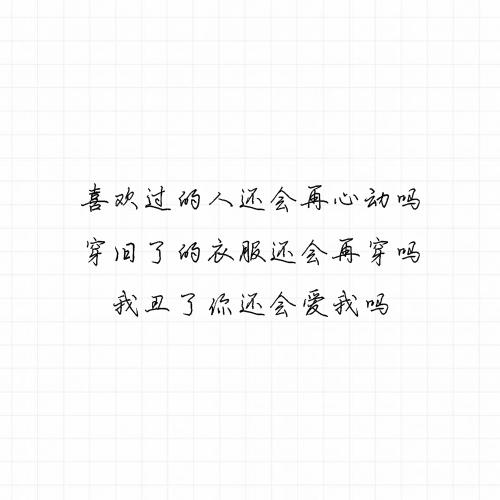 喜欢过的人还会再心动吗
穿旧了的衣服还会再穿吗
我丑了你还会爱我吗